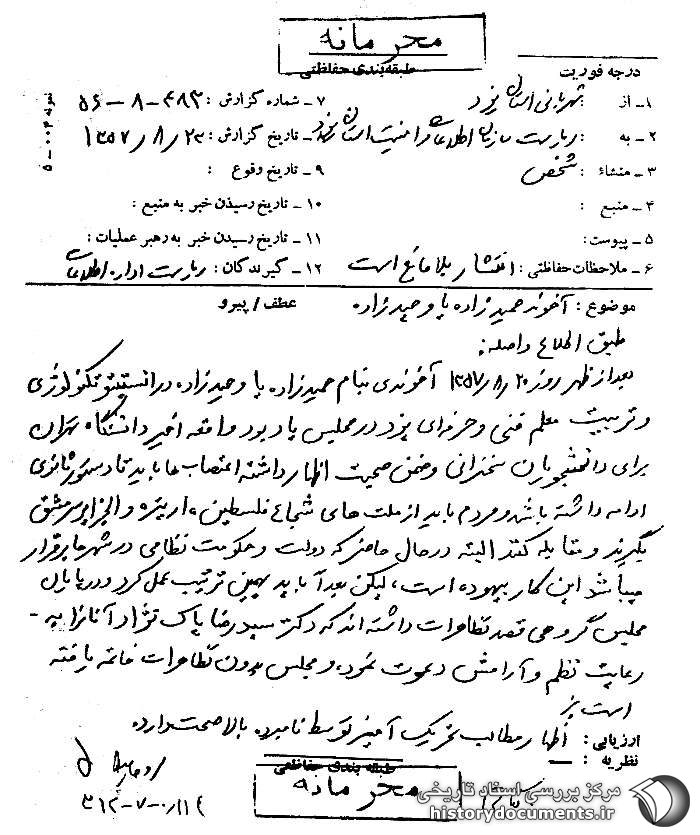 محرمانه
طبقه‌بندی حفاظتی
درجه فوریت
۱ـ از : شهربانی استان یزد
۷ـ شماره گزارش : ۴۸۳ـ۸ـ۵۶
نمونه ۰۰۴ـ۵
۲ـ به : ریاست سازمان اطلاعات و امنیت استان یزد
۸ـ تاریخ گزارش : ۲۳/۸/۱۳۵۷
۳ـ منشاء : شخص
۹ـ تاریخ وقوع :
۴ـ منبع :
۱۰ـ تاریخ رسیدن خبر به منبع :
۵ـ پیوست :
۱۱ـ تاریخ رسیدن خبر به رهبر عملیات :
۶ـ ملاحظات حفاظتی : انتشار بلامانع است
۱۲ـ گیرندگان : ریاست اداره اطلاعات
موضوع : آخوند حمیدزاده یا وحیدزاده.
عطف / پیرو
طبق اطلاع واصله:
بعدازظهر روز ۲۰/۸/۱۳۵۷ آخوندی بنام حمیدزاده یا وحیدزاده در انستیتو تکنولوژی
و تربیت معلم فنی و حرفه‌ای یزد در مجلس یادبود واقعه اخیر دانشگاه تهران
برای دانشجویان سخنرانی و ضمن صحبت اظهار داشته اعتصاب ها باید تا دستور ثانوی
ادامه داشته باشد و مردم باید از ملت های شجاع فلسطین، اریتره و الجزایر سرمشق
بگیرند و مقابله کنند البته در حال حاضر که دولت و حکومت نظامی در شهرها برقرار
میباشد این کار بیهوده است، لیکن بعداً باید بهمین ترتیب عمل کرد و در پایان
مجلس گروهی قصد تظاهرات داشته اند که دکتر سید رضا پاک نژاد آنانرا به ـ
رعایت نظم و آرامش دعوت نموده و مجلس بدون تظاهرات خاتمه یافته
است.
ارزیابی : اظهار مطالب تحریک آمیز توسط نامبرده بالا صحت دارد.
نظریه : ـ
طبقه بندی حفاظتی
محرمانه
مرکز بررسی اسناد تاریخی
historydocuments.ir